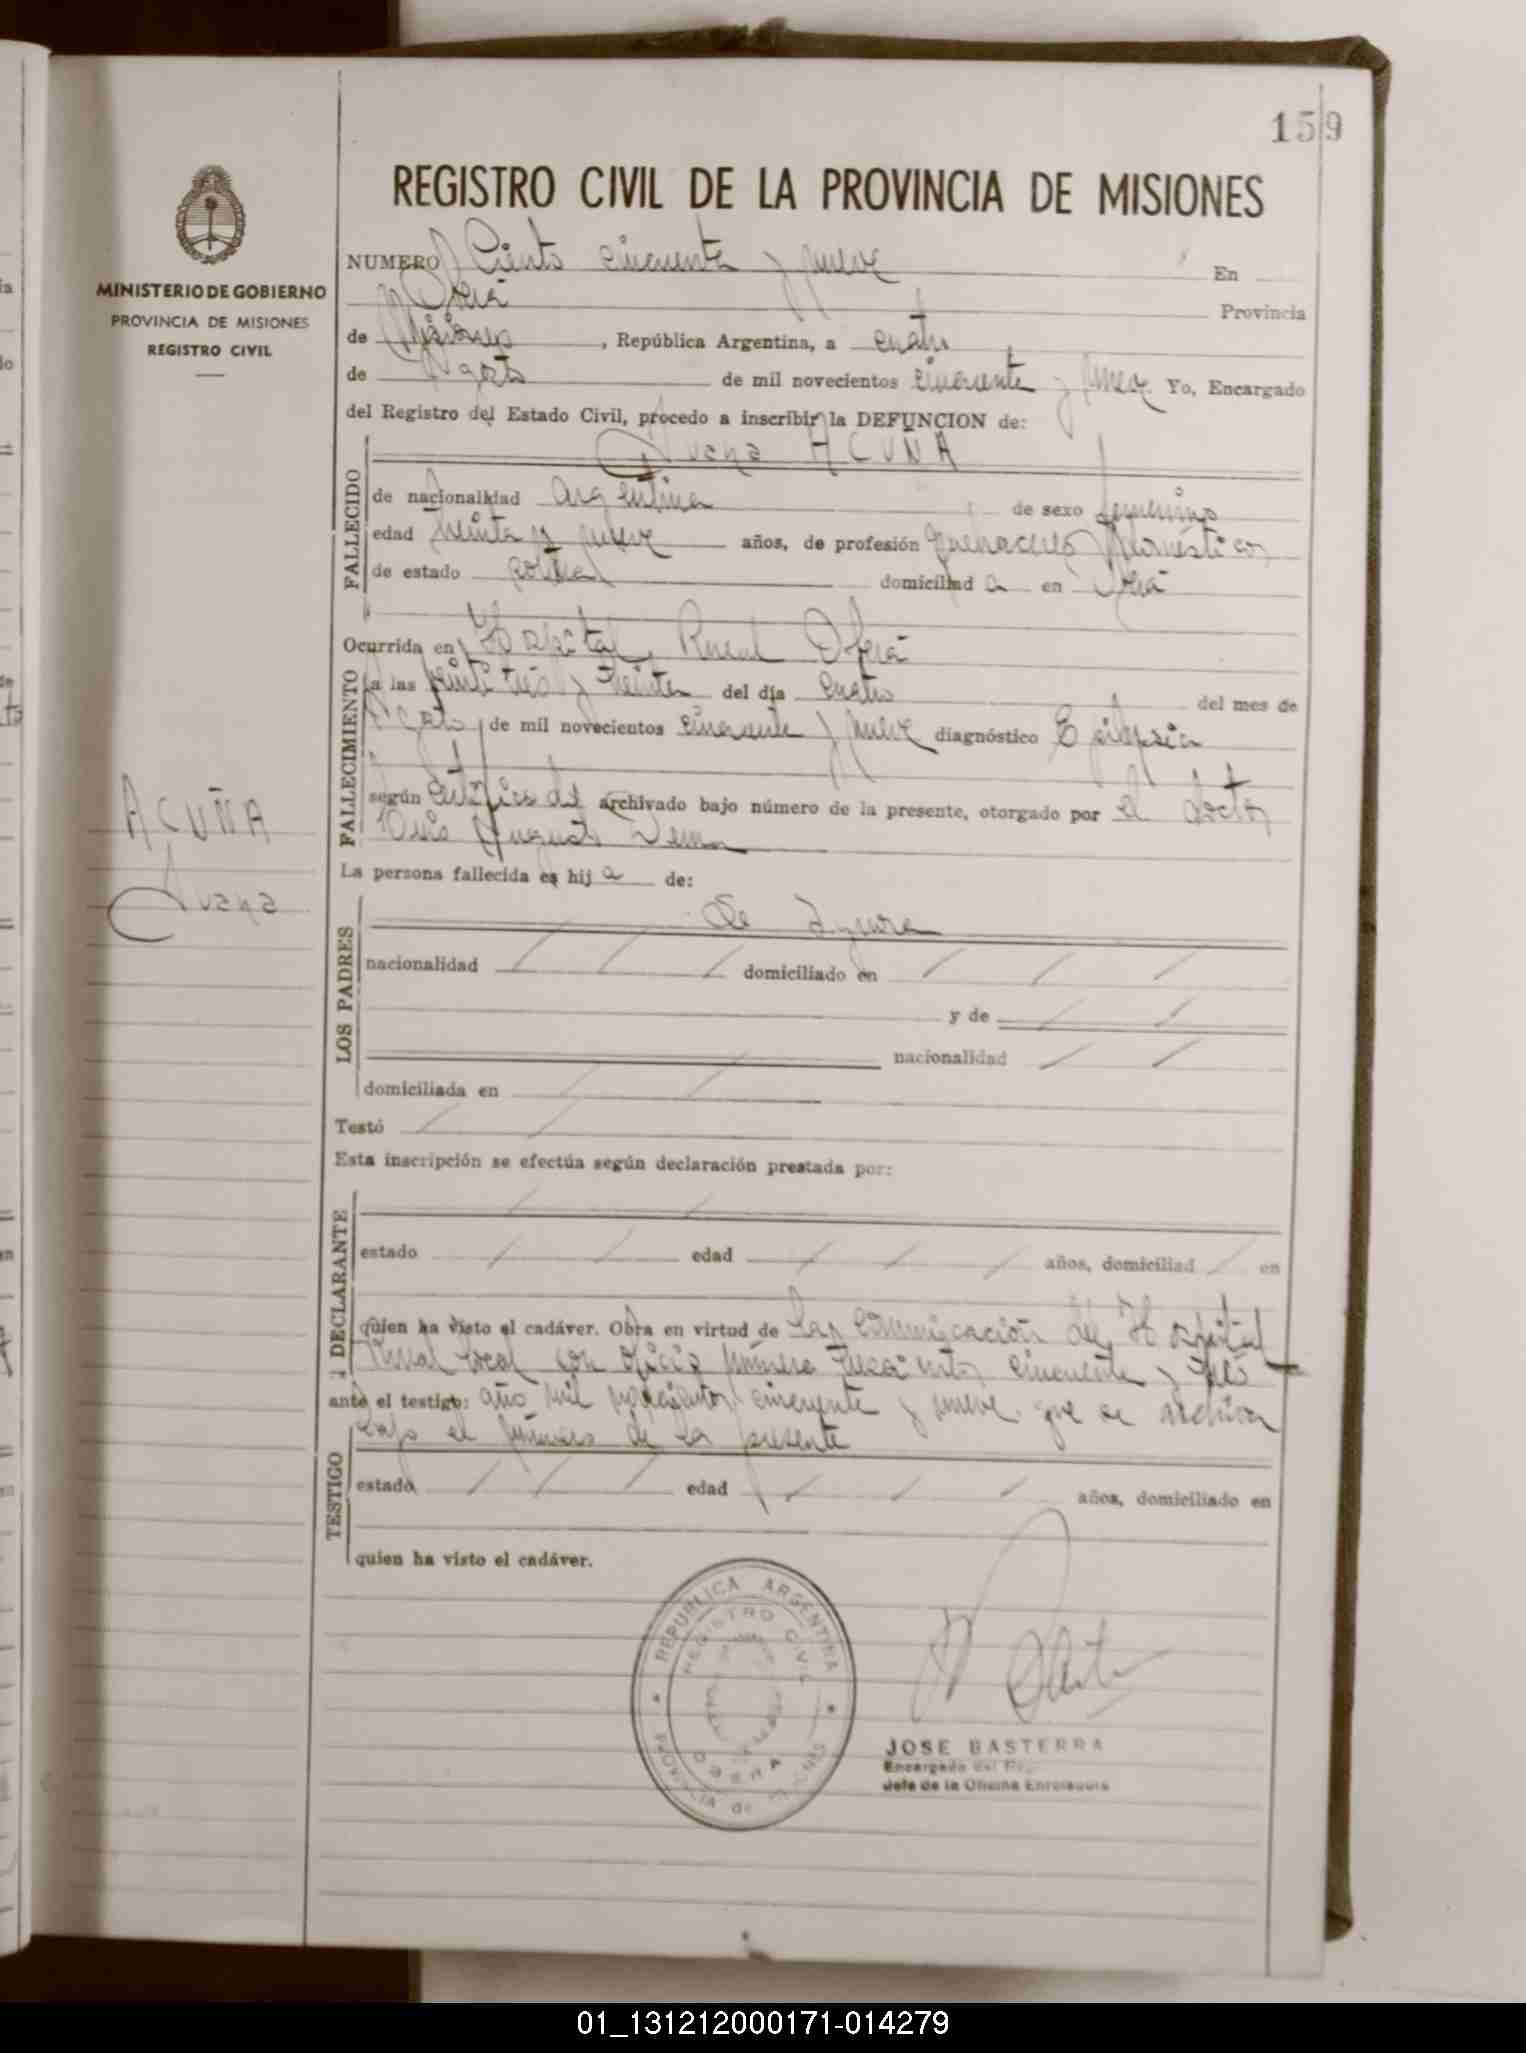 159
REGISTRO CIVIL DE LA PROVINCIA DE MISIONES
MINISTERIO DE GOBIERNO
PROVINCIA DE MISIONES
REGISTRO CIVIL
NUMERO Ciento cincuenta y nueve En
Oberá Provincia
de Misiones, República Argentina, a cuatro
de Agosto de mil novecientos cincuenta y nueve Yo, Encargado
del Registro del Estado Civil, procedo a inscribir la DEFUNCION de:
Juana ACUÑA
FALLECIDO
de nacionalidad argentina de sexo femenino
edad treinta y nueve años, de profesión quehaceres domésticos
de estado soltera domiciliad a en Oberá
Ocurrida en Hospital Rural Oberá
FALLECIMIENTO
a las veinti tres y treinta del día cuatro del mes de
Agosto, de mil novecientos cincuenta y nueve diagnóstico Epilepsia
según certificado archivado bajo número de la presente, otorgado por el doctor
Luis Augusto
La persona fallecida es hij a de:
LOS PADRES
Se ignora
nacionalidad domiciliado en
y de
nacionalidad
domiciliada en
Testó
Esta inscripción se efectúa según declaración prestada por:
DECLARANTE
estado edad años, domiciliad en
quien ha visto el cadáver. Obra en virtud de la comunicación del Hospital
Rural local con oficio número cincuenta y
ante el testigo: año mil novecientos cincuenta y nueve que se archiva
bajo el número de la presente
TESTIGO
estado edad años, domiciliado en
quien ha visto el cadáver.
ACUÑA
Juana
REPUBLICA ARGENTINA
REGISTRO CIVIL
OBERA
PROVINCIA de MISIONES
JOSE BASTERRA
Encargado del
Jefe de la Oficina Enroladora
01_131212000171-014279